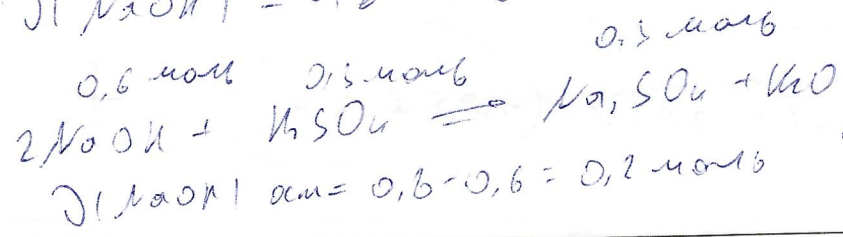 ν(NaOH) =
0,3 моль
0,6 моль 0,3 моль
2NaOH + H₂SO₄ = Na₂SO₄ + H₂O
ν(NaOH) ост = 0,8 - 0,6 = 0,2 моль